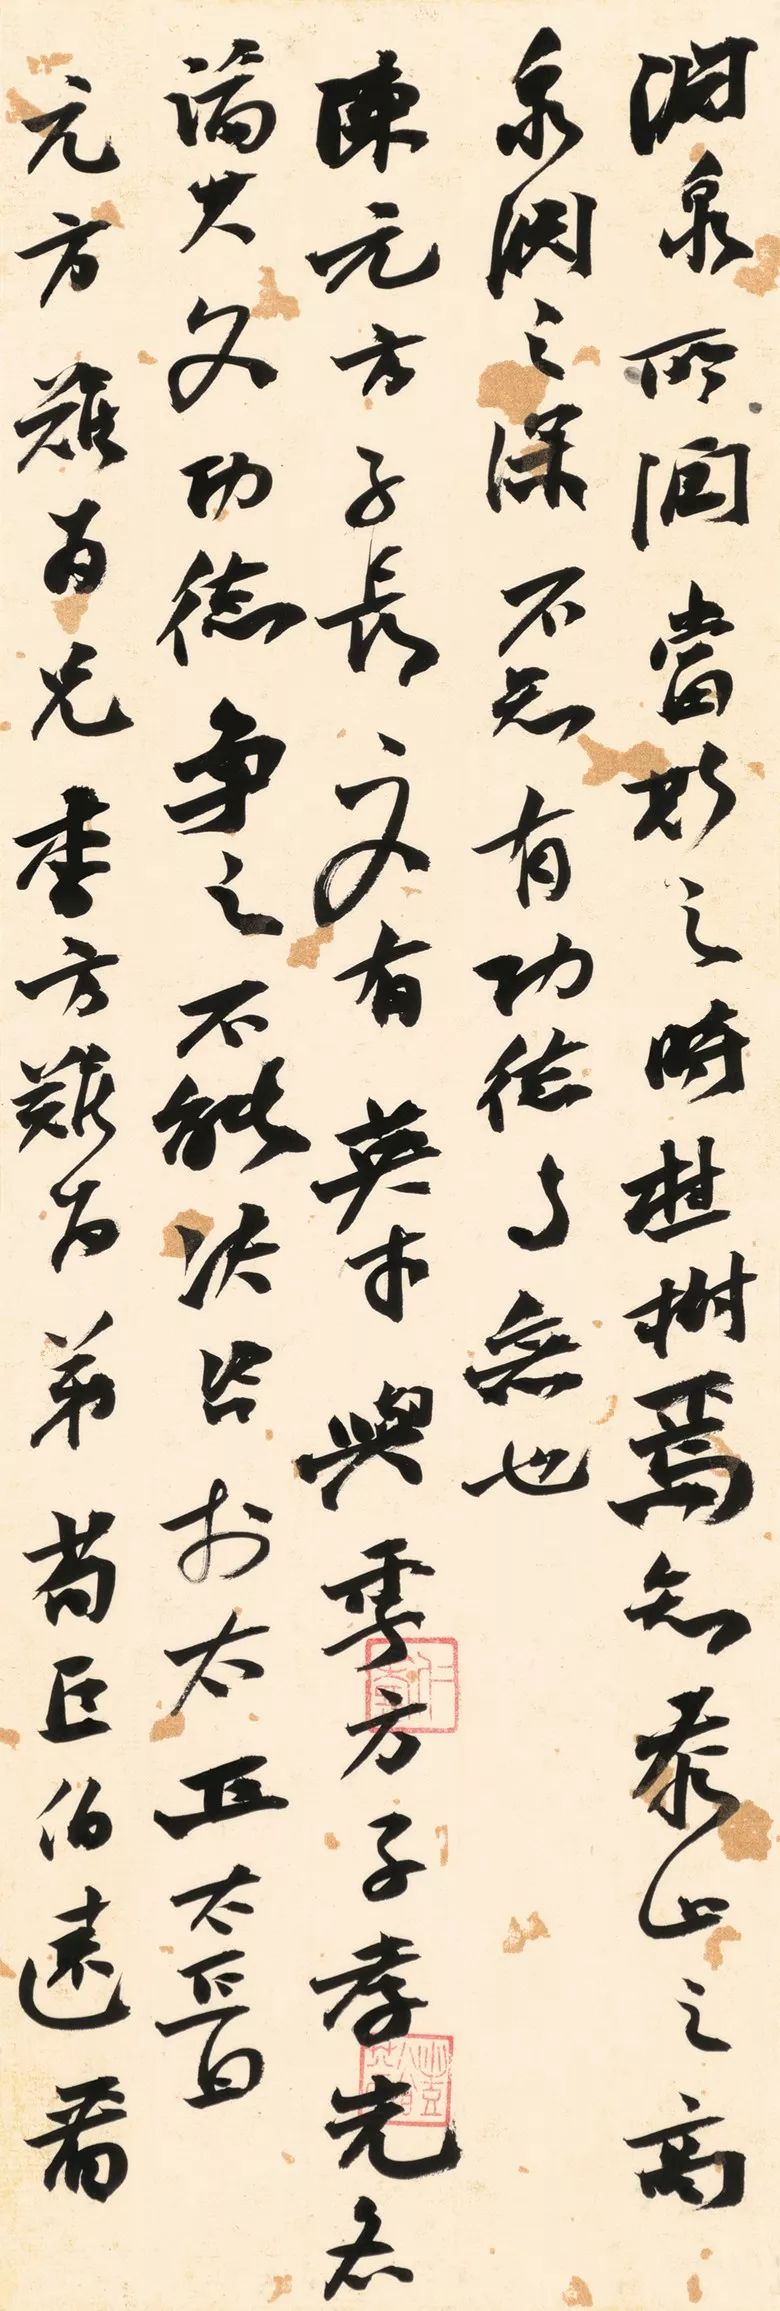 淵泉所潤當斯之時桂樹焉知泰山之高
泉淵之深不知有功德与無也
陳元方子長文有英才與季方子孝先各
論其父功德爭之不能決咨於太丘太丘曰
元方難為兄季方難為弟荀巨伯遠看